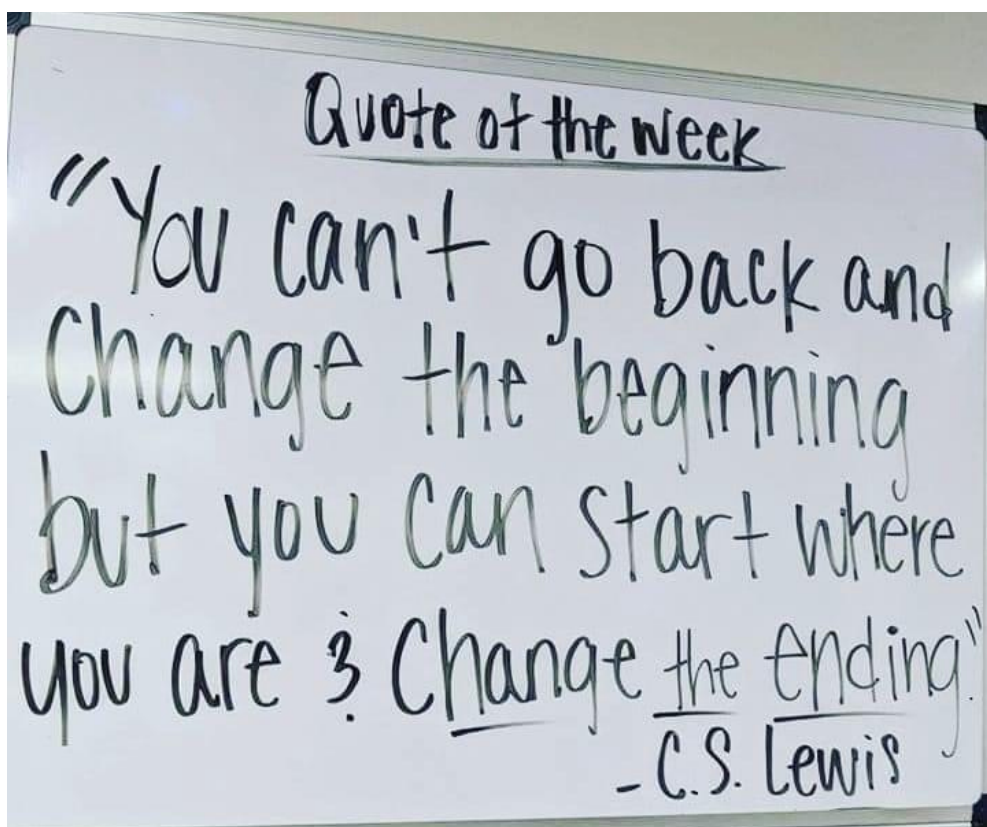 Quote of the week
"You can't go back and
change the beginning
but you can start where
you are & change the ending."
- C.S. Lewis